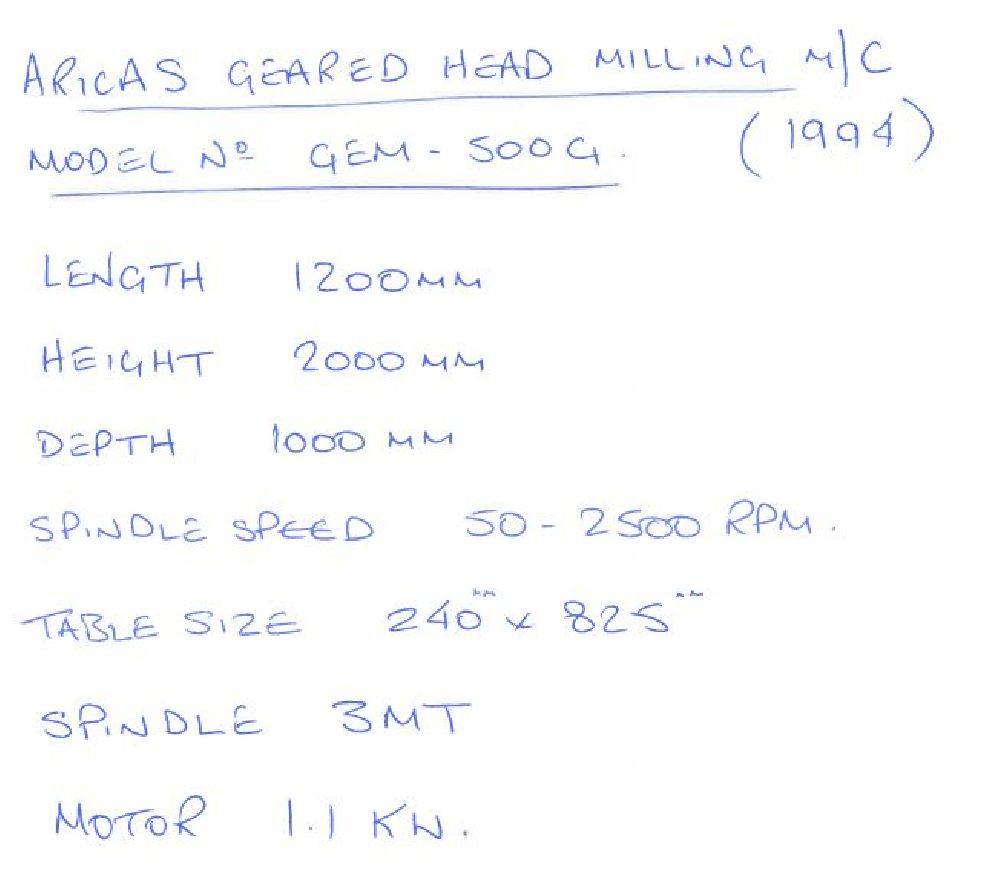 ARICAS GEARED HEAD MILLING M/C
MODEL Nº GEM - 500G. (1994)
LENGTH 1200MM
HEIGHT 2000 MM
DEPTH 1000 MM
SPINDLE SPEED 50 - 2500 RPM.
TABLE SIZE 240mm x 825mm
SPINDLE 3MT
MOTOR 1.1 KW.